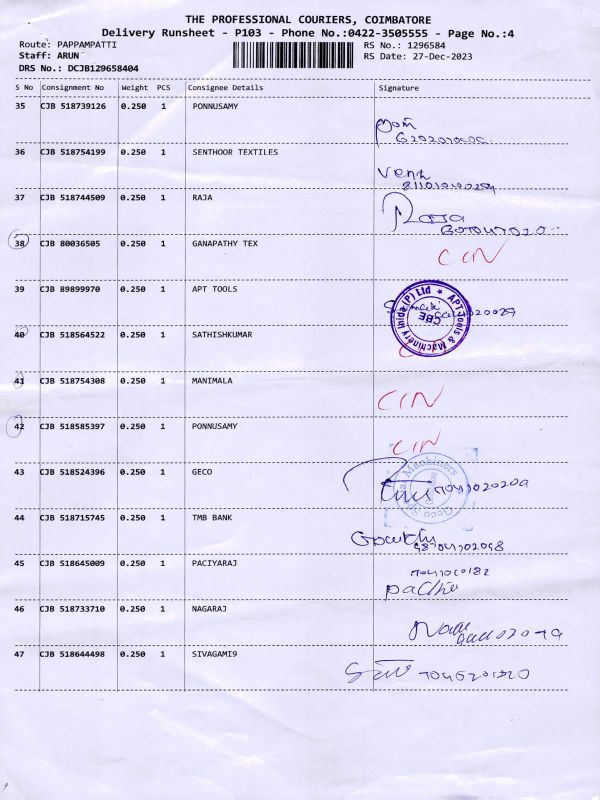 THE PROFESSIONAL COURIERS, COIMBATORE
Delivery Runsheet - P103 - Phone No.:0422-3505555 - Page No.:4
Route: PAPPAMPATTI RS No.: 1296584
Staff: ARUN RS Date: 27-Dec-2023
DRS No.: DCJB129658404
S No Consignment No Weight PCS Consignee Details Signature
35 CJB 518739126 0.250 1 PONNUSAMY
36 CJB 518754199 0.250 1 SENTHOOR TEXTILES
37 CJB 518744509 0.250 1 RAJA
Raja
38 CJB 80036505 0.250 1 GANAPATHY TEX
CIN
39 CJB 89899970 0.250 1 APT TOOLS
APT Tools & Machinery India (P) Ltd ★
CBE
40 CJB 518564522 0.250 1 SATHISHKUMAR
41 CJB 518754308 0.250 1 MANIMALA
CIN
42 CJB 518585397 0.250 1 PONNUSAMY
CIN
43 CJB 518524396 0.250 1 GECO
44 CJB 518715745 0.250 1 TMB BANK
45 CJB 518645009 0.250 1 PACIYARAJ
46 CJB 518733710 0.250 1 NAGARAJ
47 CJB 518644498 0.250 1 SIVAGAMI9